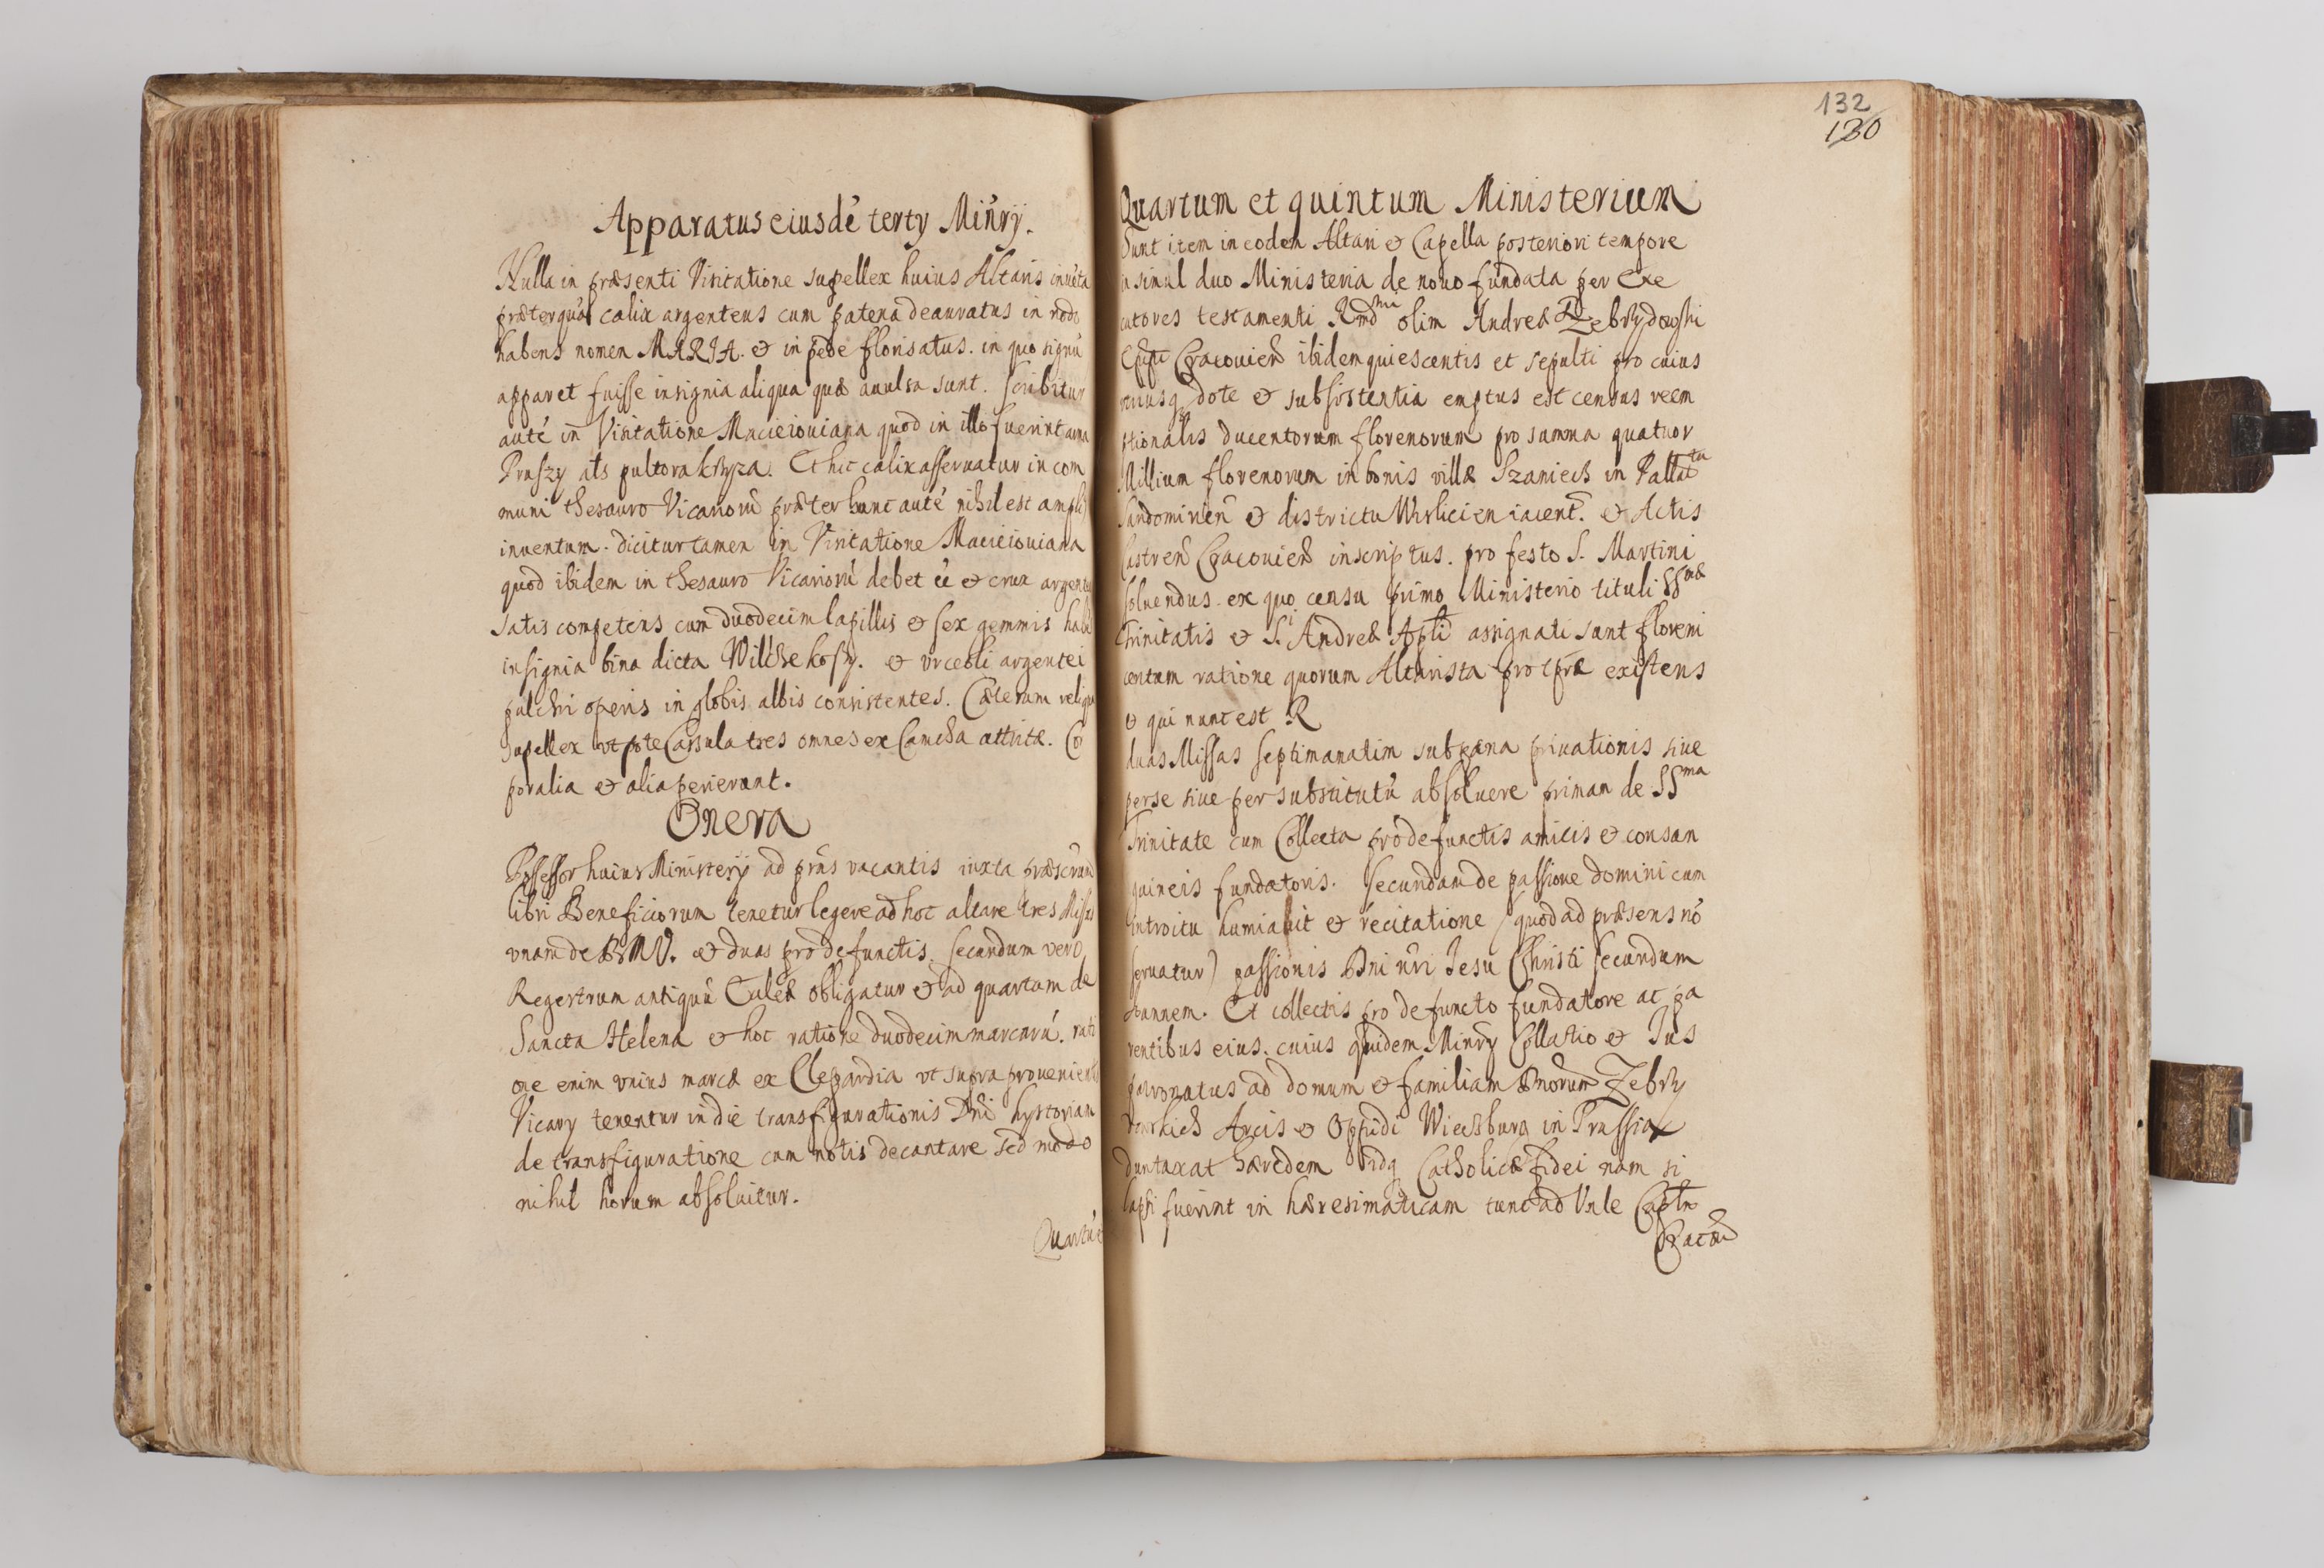 Apparatus eiusdē tertÿ Minrÿ.
Nulla in præsenti Visitatione supellex huius Altaris inuēta
præterquā calix argenteus cum patena deauratus in nodo
habens nomen MARIA. et in pede florisatus. in quo signū
apparet fuisse insignia aliqua quæ auulsa sunt. scribitur
autē in Visitatione Macieiouiana quod in illo fuerint arma
Pruszy als pultora krzyza. Et hic calix asseruatur in com
muni thesauro Vicariorū præter hunc autē nihil est ampli
inuentum. dicitur tamen in Visitatione Macieiouiana
quod ibidem in thesauro Vicariorū debet ēē et crux argentea
satis competens cum duodecim lapillis et sex gemmis habē
insignia bina dicta Wilczekosy. et vrceoli argentei
pulchri operis in globis albis consistentes. Cæterum reliqua
supellex vt pote Cassula tres omnes ex Camcha attritæ. Co
poralia et alia perierunt.
Onera
Possessor huius Ministerÿ ad prns vacantis iuxta præscrund
libri Beneficiorum tenetur legere ad hoc altare tres Missas
vnam de BMV. et duas pro defunctis. secundum vero
Regestrum antiquū Tabeæ obligatur et ad quartam de
Sancta Helena et hoc ratione duodecim marcarū. rati
one enim vnius marcæ ex Clepardia vt supra provenientis
Vicary tenentur in die transfigurationis Dni hystoriam
de transfiguratione cum notis decantare sed modo
nihil horum absoluitur.
Quartū et
132
130
Quartum et quintum Ministerium
Sunt item in eodem Altari et Capella posteriori tempore
insimul duo Ministeria de nouo fundata per Exe
cutores testamenti Rmdmi olim Andreæ Zebrzydowski
Epi Cracouien ibidem quiescentis et sepulti pro cuius
vtriusq dote et subsistentia emptus est census reem
ptionalis ducentorum florenorum pro summa quatuor
Millium florenorum in bonis villæ Szaniecz in Pallattu
Sandomirien et districtu Wislicien iacent. et Actis
Castren Cracouien inscriptus. pro festo S. Martini
soluendus. ex quo censu primo Ministerio tituli SSmæ
Trinitatis et Si Andreæ Apli assignati sunt floreni
centum ratione quorum Altarista pro tpre existens
et qui nunc est R
duas Missas septimanatim sub pæna priuationis siue
per se siue per substitutū absoluere primam de SSma
Trinitate cum Collecta pro defunctis amicis et consan
guineis fundatoris. secundam de passione domini cum
introitu humiauit et recitatione (quod ad præsens nō
seruatur) passionis Dni nri Iesu Christi secundum
Ioannem. Et collectis pro defuncto fundatore ac pa
rentibus eius. cuius quidem Minrÿ Collatio et Ius
patronatus ad domum et familiam Dnorum Zebrzy
dowskich Arcis et Oppidi Wieczburg in Prussia
duntaxat hæredem idq Catholicæ fidei nam si
lapsi fuerint in hæresim aticam tunc ad Vnle Captm
Cracou